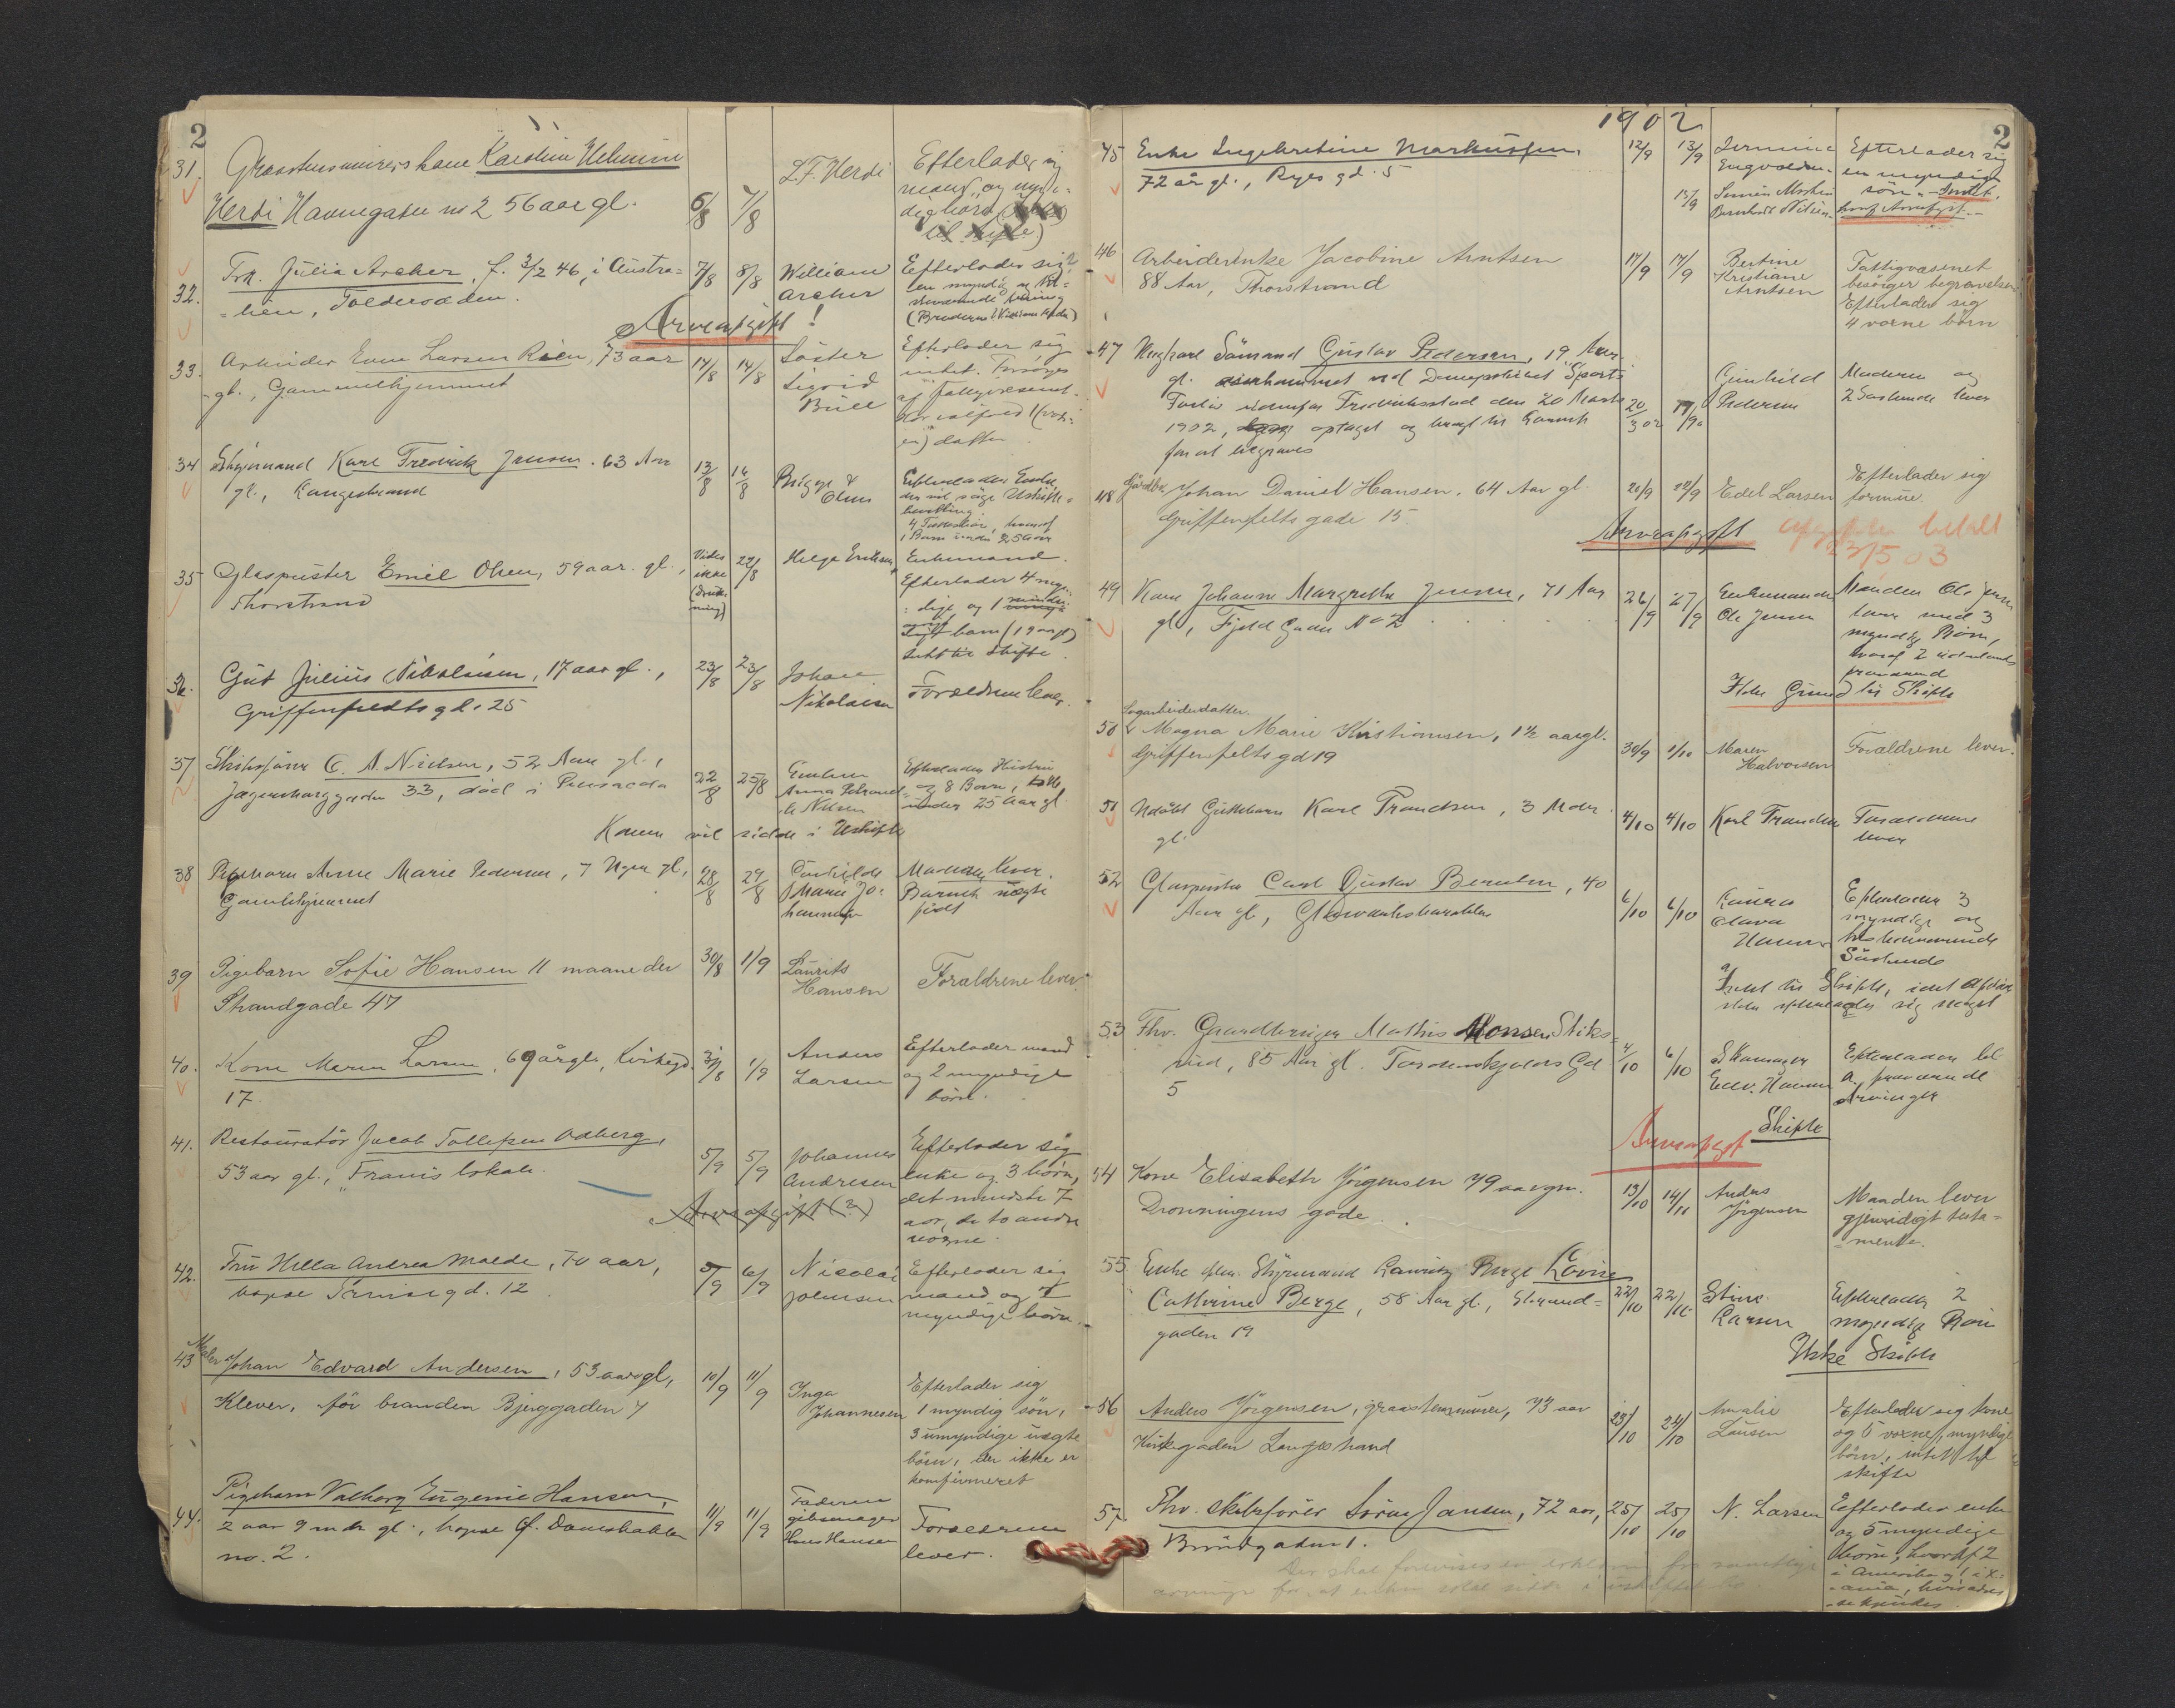 2
31. Graastensmurers kone Karoline Helmine
Herdi Havnegaten no 2 56 aar gl.
6/8 7/8
L.F. Herdi
Efterlader sig
mand og myn-
dige börn
til skifte)
32. Frk. Julia Archer, f. 3/2 46, i Austra=
=lien, Tolderodden.
7/8 8/8
William
Archer
Efterlader sig
en myndig
Arveafgift!
33. Arbeider Even Larsen Röen, 73 aar
gl., Gammelhjemmet
14/8 14/8
Söster
Sigrid
Bull
Efterlader sig
intet. Forsörges
af fattigvæsenet.
datter
34 Skipmand Karl Fredrik Jensen. 63 Aar
gl., Langestrand
13/8 14/8
Birgit
Olsen
Efterlader Enke
der vil söge Uskifte-
bevilling.
1 Barn under 25 Aar
35 Glaspuster Emil Olsen, 59 aar. gl.,
Thorstrand
Vides
ikke
(Druk-
ning)
22/8
Helge Eriksen
Enkemand.
Efterlader 4 myn-
dige og 1
barn (19 aar gl)
Intet til skifte.
36. Gut Julius Nikolaisen, 17 aar gl.,
Griffenfeldts gd. 25
23/8 23/8
Johan
Nikolaisen
Forældrene lever.
37 Skibsförer C. A. Nielsen, 52 Aar gl.,
Jægersborggaden 33, död i Pensacola
22/8 25/8
Enken
Anna
Nielsen
Efterlader Hustru
og 8 Börn,
under 25 Aar gl.
Konen vil sidde i Uskifte
38 Pigebarn Anne Marie Pedersen, 7 Uger gl.,
Gamlehjemmet
28/8 29/8
Marie Jo-
hannesen
Moderen lever.
Barnet uægte
födt
39 Pigebarn Sofie Hansen 11 maaneder
Strandgade 47
30/8 1/9
Laurits
Hansen
Forældrene lever.
40. Kone Maren Larsen, 69 år gl., Kirkegd.
17.
31/8 1/9
Anders
Larsen
Efterlader mand
og 2 myndige
börn.
41. Restauratör Jacob Tollefsen Odberg,
53 aar gl., "Franis lokale.
5/9 5/9
Johannes
Andresen
Efterlader sig
enke og 3 börn,
det mindste 7
aar, de to andre
voxne.
Arveafgift (?)
42. Fru Hella Andrea Molde, 70 aar,
bopæl Prinsegd. 12
5/9 6/9
Nicolai
Johnsen
Efterlader sig
mand og 7
myndige börn.
43 Maler Johan Edvard Andersen, 53 aar gl,
Klever, för branden Bjerggaden 7
10/9 11/9
Inga
Johannesen
Efterlader sig
1 myndig sön,
3 umyndige uægte
börn, der ikke er
konfirmeret
44. Pigebarn Valborg Eugenie Hansen,
2 aar 9 mdr gl., bopæl Gl. Damsbakken
no. 2.
11/9 11/9
Faderen
gibsmager
Hans Hansen
Forældrene
lever.
1902
2
45 Enke Ingebretine Markussen.
72 år gl., Ryes gd. 5
12/9 13/9
15/9
Efterlader sig
en myndig
sön. - Intet.
46 Arbeiderenke Jacobine Arntsen
88 Aar, Thorstrand
17/9 17/9
Bertine
Kristiane
Arntsen
Fattigvæsenet
besörger begravelsen
Efterlader sig
4 voxne börn
47 Ungkarl Sömand Gustav Pedersen, 19 Aar
gl. omkommet ved Dampskibet Sports
Forlis udenfor Fredriksstad den 20 Marts
1902, optaget og bragt til Larvik
for at begraves
20/3 02 19/9
Gunhild
Pedersen
Moderen og
2 Söskende lever
48 Gårdbr. Johan Daniel Hansen, 64 Aar gl.
Griffenfelts gade 15.
20/9 22/9
Edel Larsen
Efterlader sig
formue.
Arveafgift
Afgiften betalt
23/5 03
49 Kone Johanne Margrethe Jensen, 71 Aar
gl., Fjeld Gaden No 2
26/9 27/9
Enkemanden
Ole Jensen
Manden Ole Jensen
lever med 3
myndige Börn,
hvoraf 2 udenlands
Ikke Grund til Skifte
50 Sagarbeiderdatter.
Magna Marie Kristiansen, 1½ aar gl.
Griffenfelts gd 19
30/9 1/10
Maren
Halvorsen
Forældrene lever.
51 Udöbt Guttebarn Karl Frandsen, 3 Mdr
gl.
4/10 4/10
Karl Frandsen
Forældrene
lever
52 Glaspuster Carl Gustav Berulm, 40
Aar gl, Glasværksbarakken
6/10 6/10
Laura
Olava
Hansen
Efterlader 3
myndige og
Söskende
Intet til Skifte, idet Afdöde
ikke efterlader sig noget
53 Fhv. Gaardbruger Mathis Monsen Stiks-
rud, 85 Aar gl. Tordenskjolds Gd
5
4/10 6/10
Skomager
Edv. Hansen
Efterlader
Arvinger
Skifte
Arveafgift
54 Kone Elisabeth Jörgensen 79 aar gm.
Dronningens gade.
13/10 14/10
Anders
Jörgensen
Manden lever
gjensidigt testa-
mente.
55. Enke efter Styrmand Lauritz Berge Lovise
Cathrine Berge, 58 Aar gl., Strand-
gaden 19
22/10 22/10
Stine
Larsen
Efterlader 2
myndige Börn
Ikke Skifte
56 Anders Jörgensen, graastensmurer, 73 aar
Kirkegaden Langestrand
23/10 24/10
Amalie
Larsen
Efterlader sig kone
og 5 voxne, myndige
börn, intet til
skifte
57. Fhv. skibsförer Sörine Jansen, 72 aar,
Brundgaden 1.
25/10 25/10
N. Larsen
Efterlader enke
og 5 myndige
börn, hvoraf 2
i Amerika
Der skal forevises en erklæring fra samtlige
arvinger for at enken skal sidde i uskiftet bo.